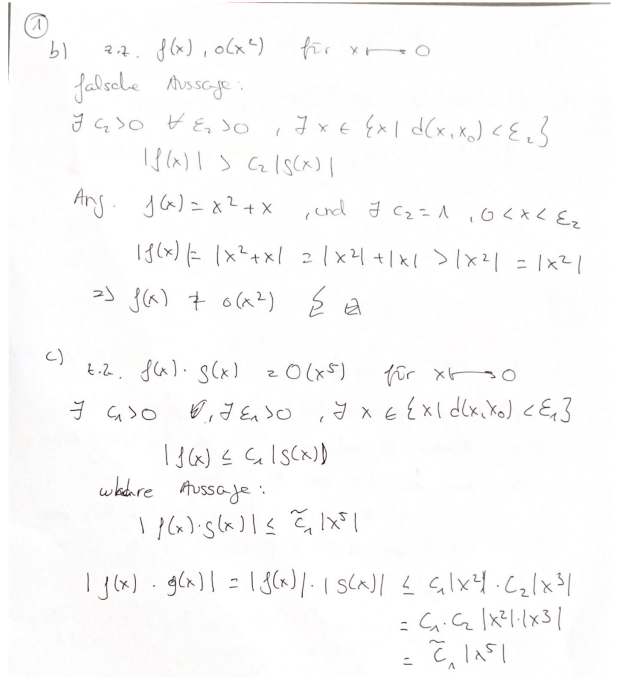 ①
b) z.z. f(x) , o(x²) für x ↦ 0
falsche Aussage:
∃ C₂>0 ∀ ε₂>0 , ∃ x ∈ {x| d(x,x₀) < ε₂}
|f(x)| > C₂|g(x)|
Ang. f(x) = x² + x , und ∃ C₂ = 1 , 0 < x < ε₂
|f(x)| = |x²+x| = |x²| + |x| > |x²| = |x²|
⇒ f(x) ≠ o(x²)
c) z.z. f(x) · g(x) = O(x⁵) für x ↦ 0
∃ C₁>0 , ∃ ε₁>0 , ∃ x ∈ {x| d(x,x₀) < ε₁}
|f(x) ≤ C₁ |g(x)|
wahre Aussage:
| f(x)·g(x)| ≤ C̃₁ |x⁵|
|f(x) · g(x)| = |f(x)|·|g(x)| ≤ C₁|x²| · C₂|x³|
= C₁·C₂ |x²|·|x³|
= C̃₁ |x⁵|